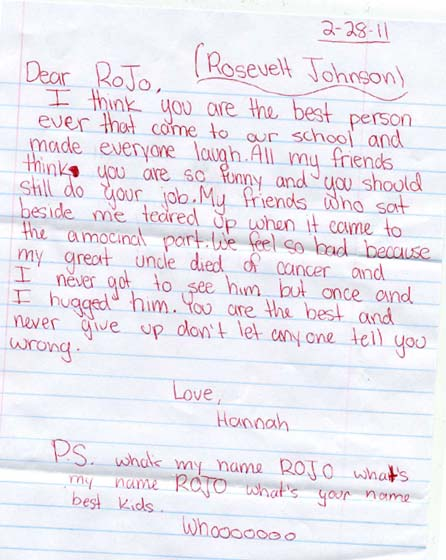 2-28-11
(Rosevelt Johnson)
Dear RoJo,
I think you are the best person
ever that came to our school and
made everyone laugh. All my friends
think you are so funny and you should
still do your job. My friends who sat
beside me teared up when it came to
the amocinal part. We feel so bad because
my great uncle died of cancer and
I never got to see him but once and
I hugged him. You are the best and
never give up don't let anyone tell you
wrong.
Love,
Hannah
P.S. what's my name ROJO what's
my name ROJO what's your name
best kids.
Whooooooo